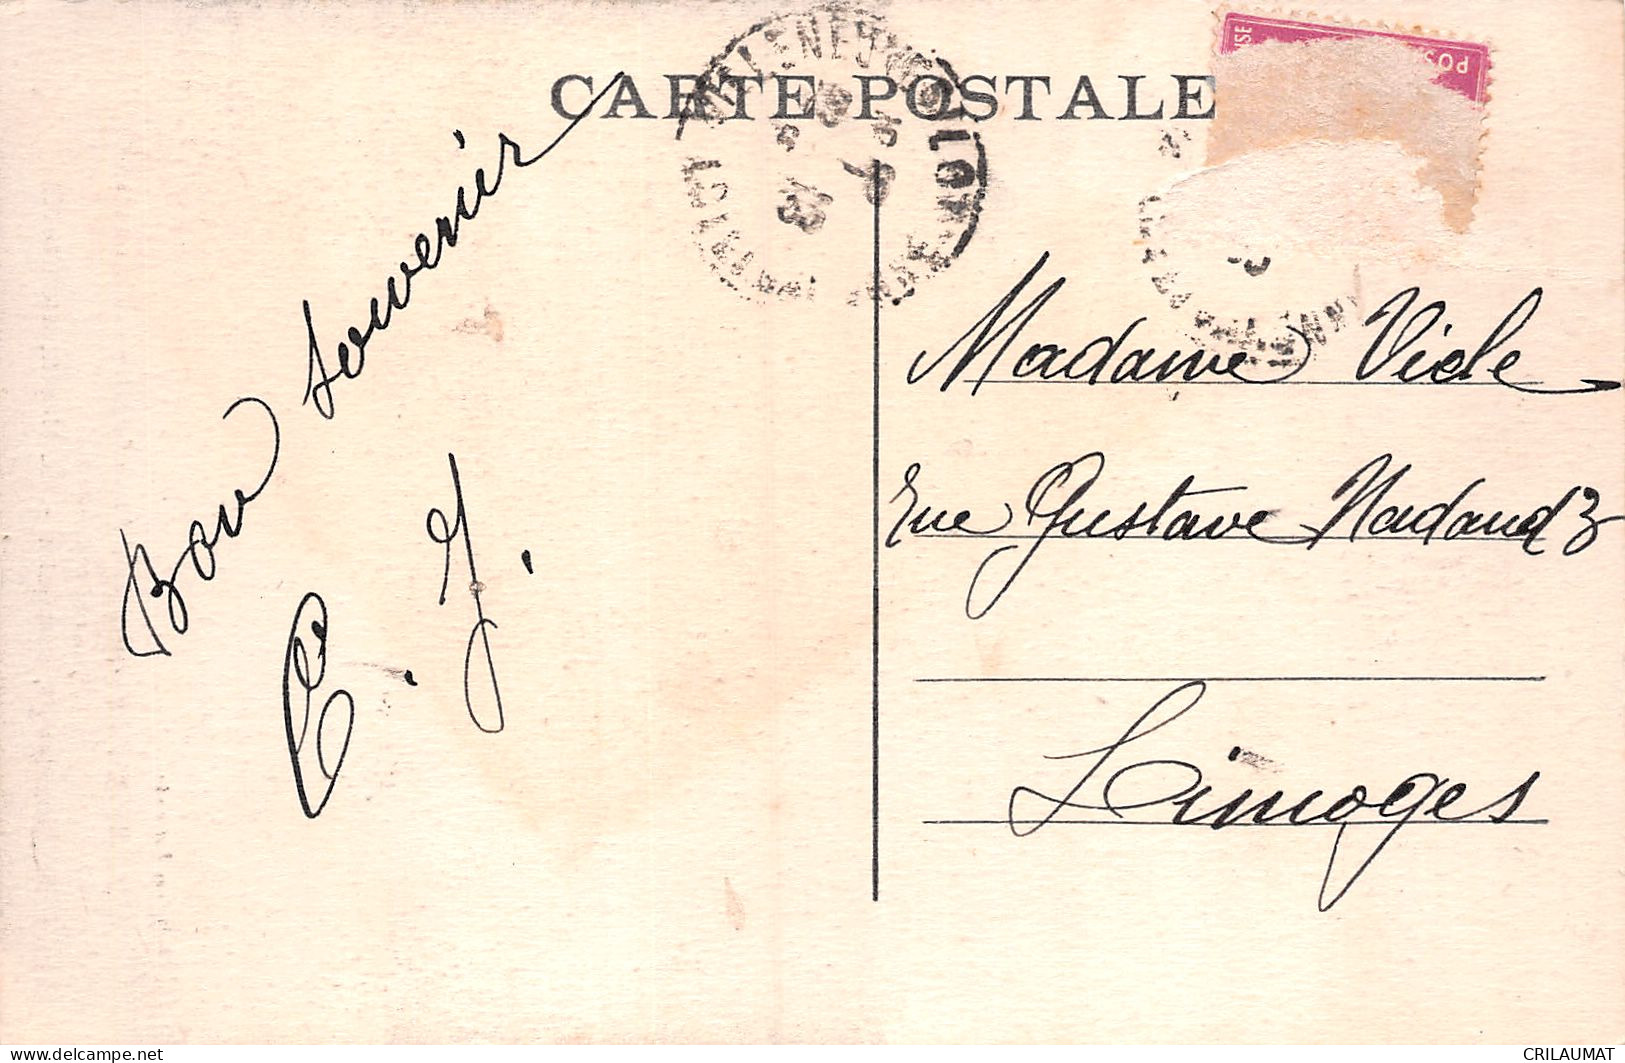 CARTE POSTALE
POS
Bon souvenir
C. J.
Madame Viale
rue Gustave Nadaud 3
Limoges
delcampe.net
CRILAUMAT